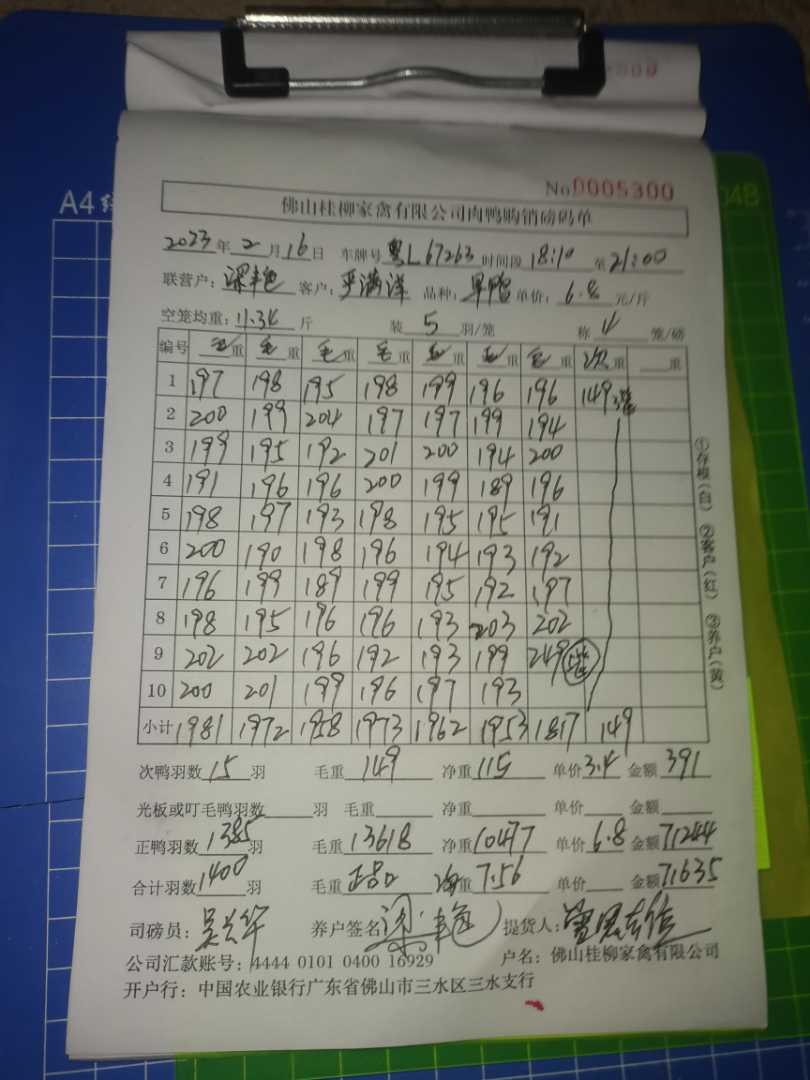 A4
048
No 0005300
佛山桂柳家禽有限公司肉鸭购销磅码单
2023年2月16日 车牌号粤L67263时间段18:10至21:00
联营户:梁丰艳 客户:严满洋 品种:旱鸭单价:6.8元/斤
空笼均重:11.34斤 装5羽/笼 称4笼/磅
编号 毛重 毛重 毛重 毛重 毛重 毛重 毛重 次重 重
1 197 198 195 198 199 196 196 149 3笼
2 200 199 204 197 197 199 194
3 199 195 192 201 200 194 200
4 191 196 196 200 199 189 196
5 198 197 193 198 195 195 191
6 200 190 198 196 194 193 192
7 196 199 189 199 195 192 197
8 198 195 196 196 193 203 202
9 202 202 196 192 193 199 249 5笼
10 200 201 199 196 197 193
小计 1981 1972 1958 1973 1962 1953 1817 149
次鸭羽数15羽 毛重149 净重115 单价3.4 金额391
光板或叮毛鸭羽数 羽 毛重 净重 单价 金额
正鸭羽数1385羽 毛重13618 净重10477 单价6.8 金额71244
合计羽数1400羽 毛重正品口 净重7.56 单价 金额71635
司磅员:吴兴华 养户签名 梁丰艳 提货人:
公司汇款账号:4444 0101 0400 16929 户名:佛山桂柳家禽有限公司
开户行:中国农业银行广东省佛山市三水区三水支行
①存根(白) ②客户(红) ③养户(黄)